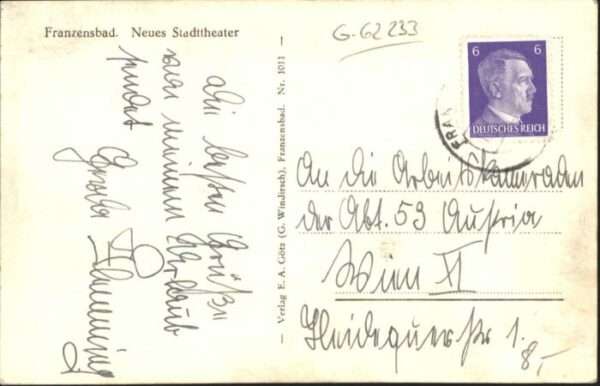 Franzensbad. Neues Stadttheater
G-62 233
6 6
DEUTSCHES REICH
FRAN
Die besten Grüße
von meinem Urlaub
sendet
Verlag E. A. Götz (G. Windirsch), Franzensbad. Nr. 1011
An die Arbeitskameraden
der Abt. 53 Austria
Wien XI
Haidequerstr 1.
8,-